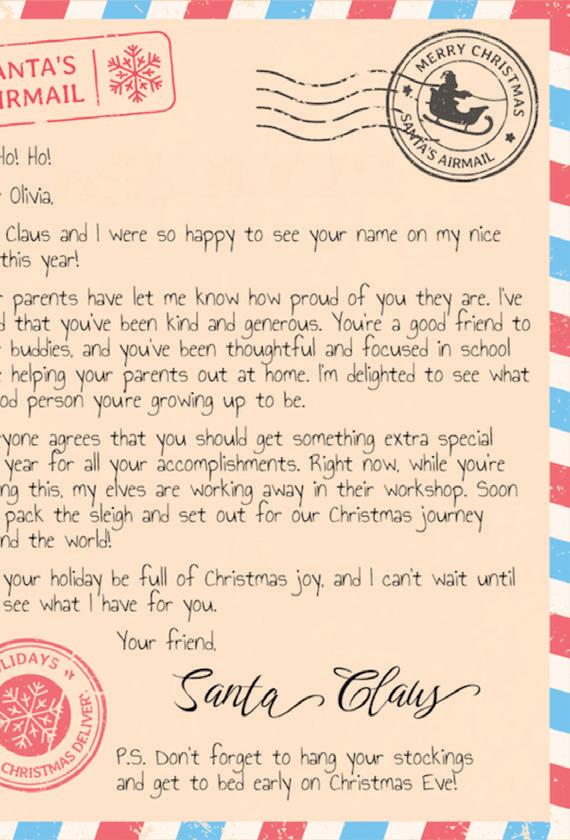 ANTA'S
IRMAIL
MERRY CHRISTMAS
SANTA'S AIRMAIL
Ho! Ho!
Olivia,
Claus and I were so happy to see your name on my nice
this year!
parents have let me know how proud of you they are. I've
d that you've been kind and generous. You're a good friend to
buddies, and you've been thoughtful and focused in school
helping your parents out at home. I'm delighted to see what
od person you're growing up to be.
yone agrees that you should get something extra special
year for all your accomplishments. Right now, while you're
ng this, my elves are working away in their workshop. Soon
pack the sleigh and set out for our Christmas journey
nd the world!
your holiday be full of Christmas joy, and I can't wait until
see what I have for you.
Your friend,
Santa Claus
OLIDAYS
CHRISTMAS DELIVER
P.S. Don't forget to hang your stockings
and get to bed early on Christmas Eve!